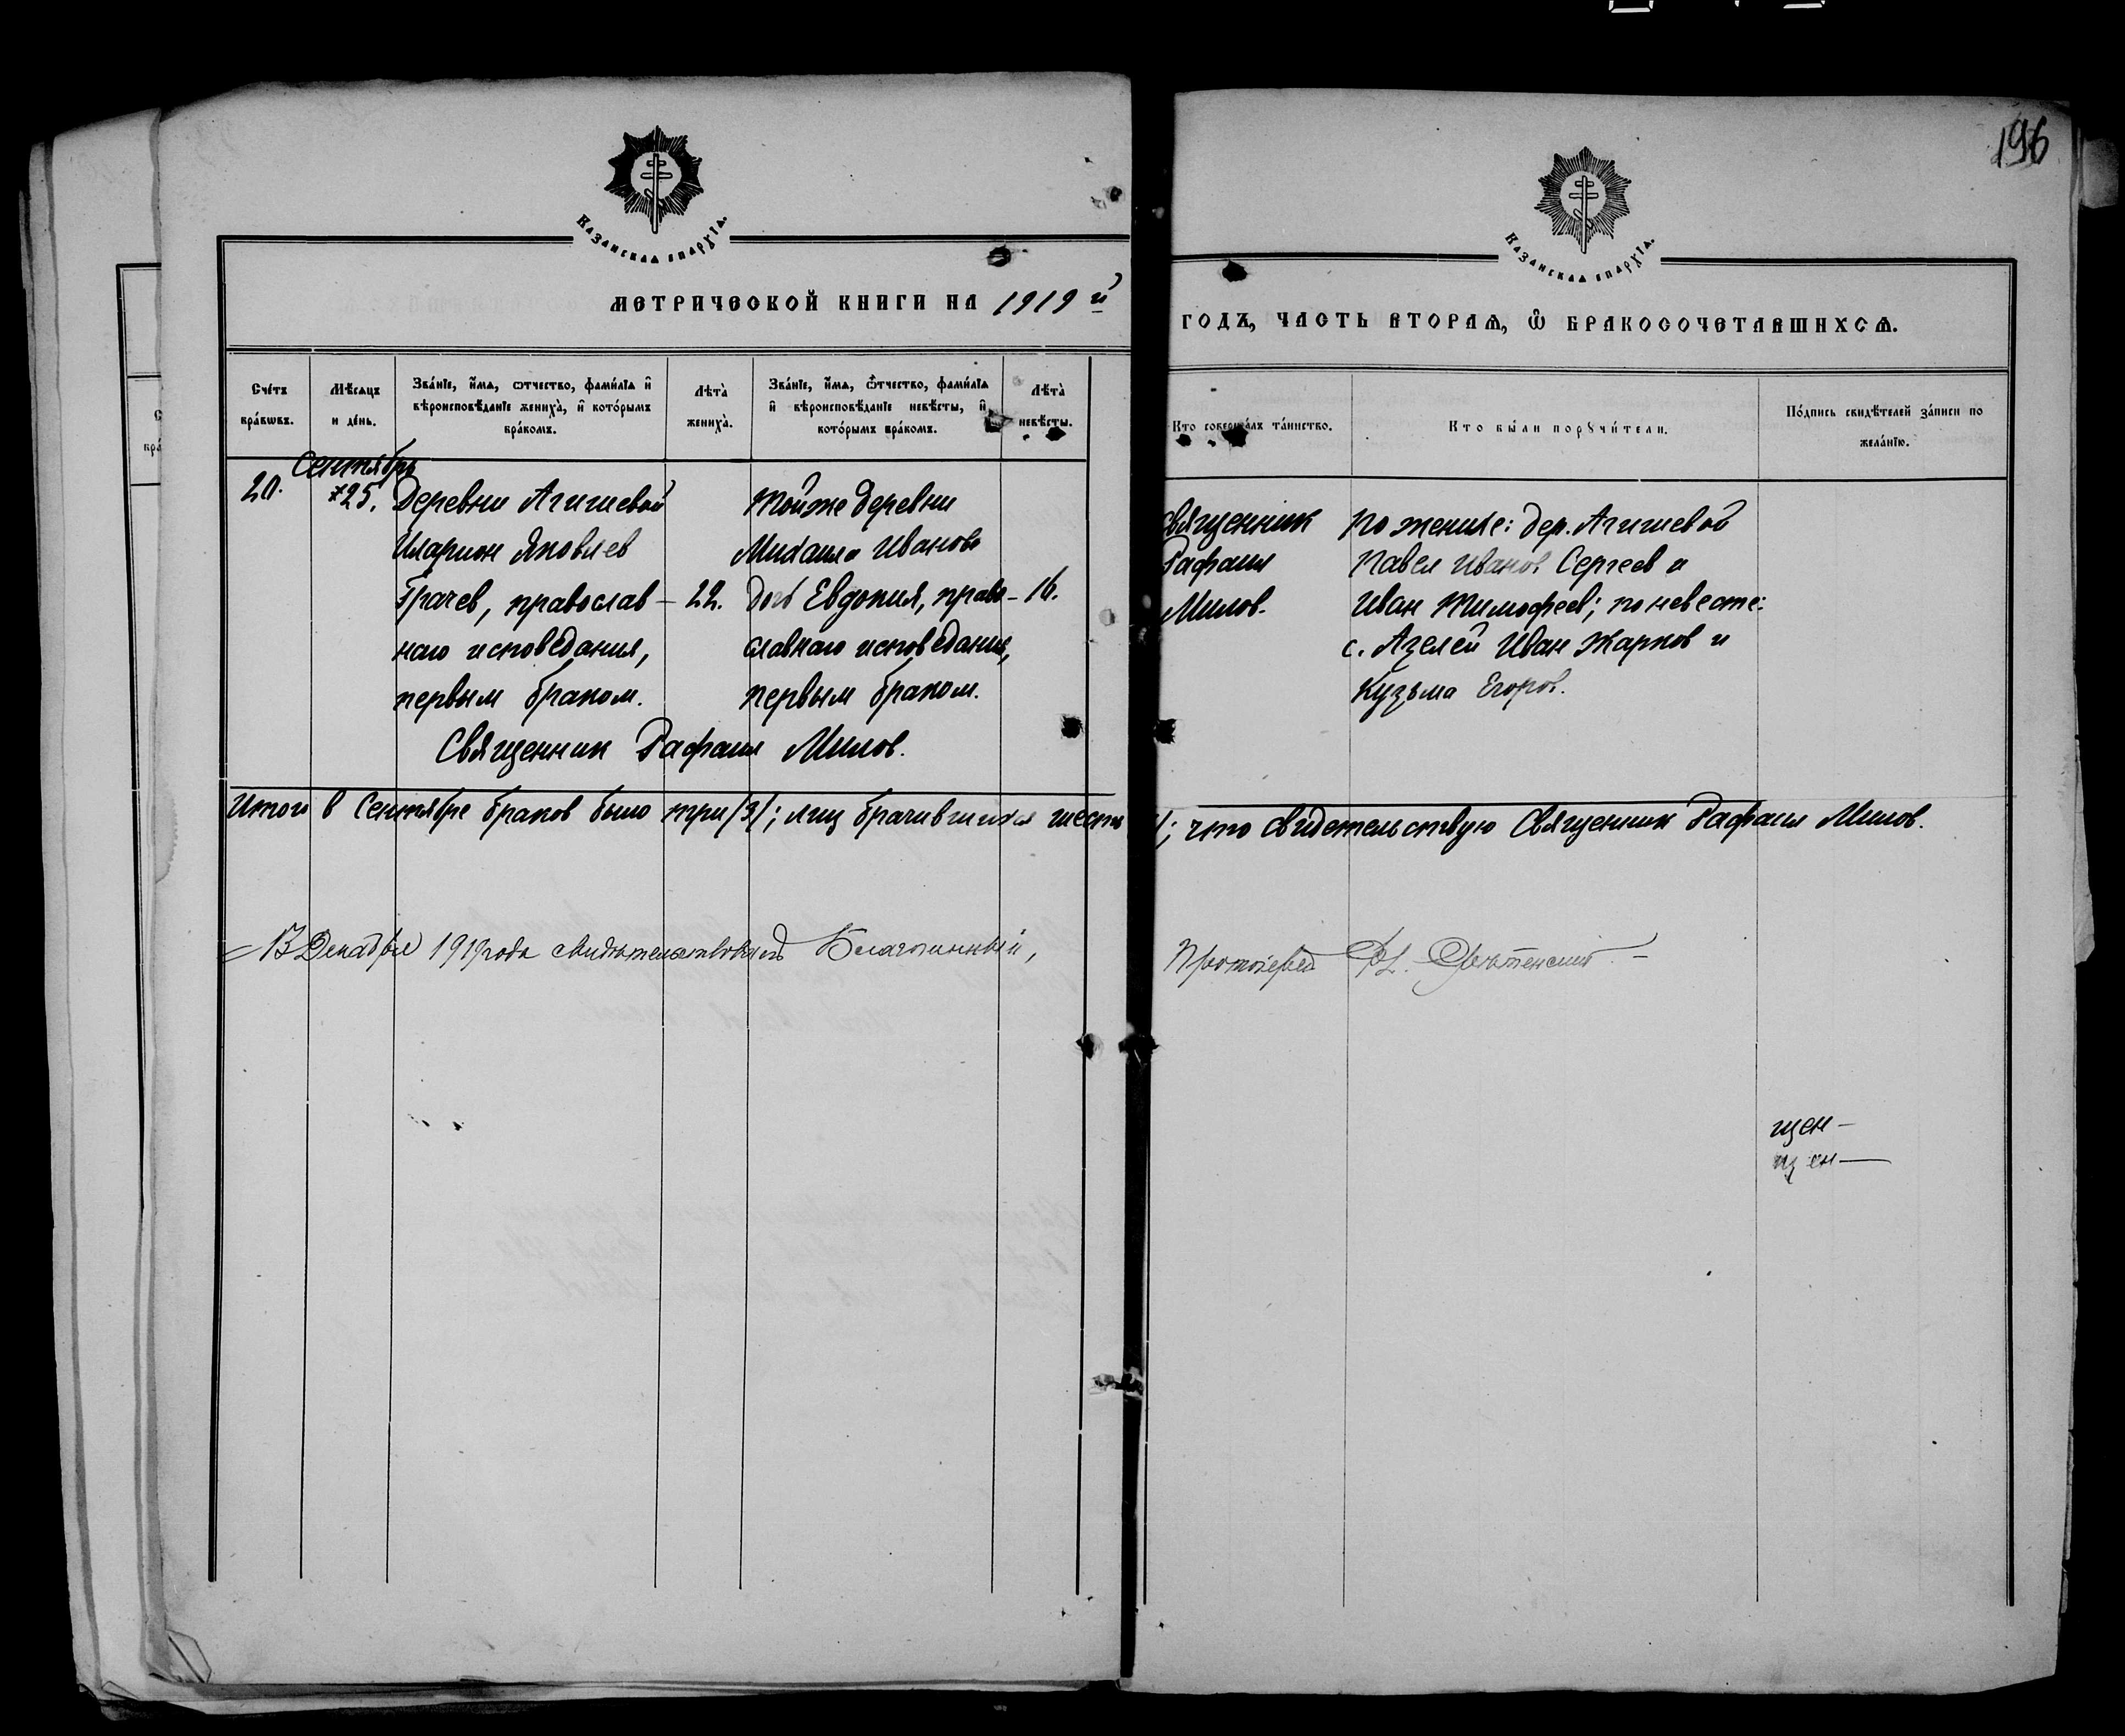 196
Казанская епархїа.
Казанская епархїа.
МЕТРИЧЕСКОЙ КНИГИ НА 1919 й
ГОДЪ, ЧАСТЬ ВТОРАѦ, Ѡ БРАКОСОЧЕТАВШИХСѦ.
Счетъ браковъ.
Мѣсяцъ и день.
Званїе, имѧ, ѿчество, фамилїѧ и вѣроисповѣданїе жениха, и которымъ бракомъ.
Лѣта жениха.
Званїе, имѧ, ѿчество, фамилїѧ и вѣроисповѣданїе невѣсты, и которымъ бракомъ.
Лѣта невѣсты.
Кто совершалъ таинство.
Кто были порꙋчители.
Подпись свидѣтелей записи по желанїю.
Сентябрь
20.
25.
Деревни Агишевой
Иларион Яковлев
Грачев, православ-
наго исповедания,
первым браком.
22.
Тойже деревни
Михаила Иванова
дочь Евдокия, право-
славнаго исповедания,
первым браком.
16.
Священник
Рафаил
Милов.
По женихе: дер. Агишевой
Павел Иванов Сергеев и
Иван Тимофеев; по невесте:
с. Азелей Иван Жарков и
Кузьма Егоров.
Священник Рафаил Милов.
Итого в Сентябре браков было три /3/; лиц брачившихся шесть
/; что свидетельствую Священник Рафаил Милов.
13 Декабря 1919 года свидѣтельствовалъ Благочинный,
Протоіерей
щен-
щен-